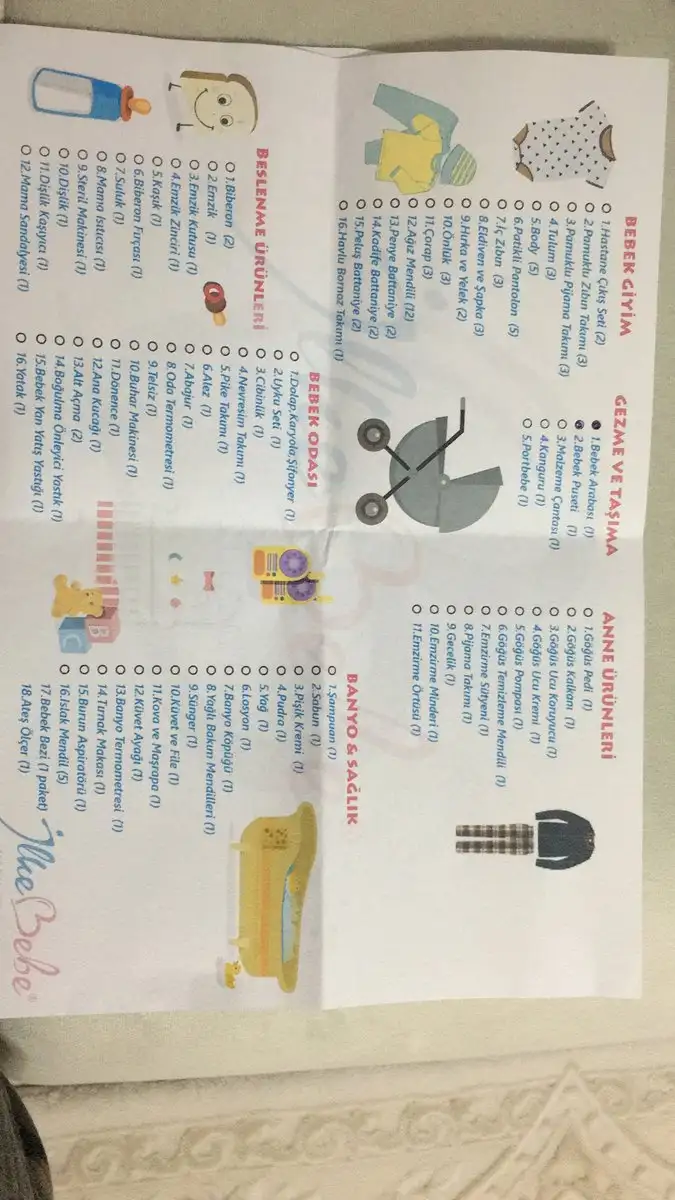 BEBEK GİYİM
1.Hastane Çıkış Seti (2)
2.Pamuklu Zıbın Takımı (3)
3.Pamuklu Pijama Takımı (3)
4.Tulum (3)
5.Body (5)
6.Patikli Pantolon (5)
7.İç Zıbın (3)
8.Eldiven ve Şapka (3)
9.Hırka ve Yelek (2)
10.Önlük (3)
11.Çorap (3)
12.Ağız Mendili (12)
13.Penye Battaniye (2)
14.Kadife Battaniye (2)
15.Peluş Battaniye (2)
16.Havlu Bornoz Takımı (1)
GEZME VE TAŞIMA
1.Bebek Arabası (1)
2.Bebek Puseti (1)
3.Malzeme Çantası (1)
4.Kanguru (1)
5.Portbebe (1)
ANNE ÜRÜNLERİ
1.Göğüs Pedi (1)
2.Göğüs Kalkanı (1)
3.Göğüs Ucu Koruyucu (1)
4.Göğüs Ucu Kremi (1)
5.Göğüs Pompası (1)
6.Göğüs Temizleme Mendili (1)
7.Emzirme Sütyeni (1)
8.Pijama Takımı (1)
9.Gecelik (1)
10.Emzirme Minderi (1)
11.Emzirme Örtüsü (1)
BESLENME ÜRÜNLERİ
1.Biberon (2)
2.Emzik (1)
3.Emzik Kutusu (1)
4.Emzik Zinciri (1)
5.Kaşık (1)
6.Biberon Fırçası (1)
7.Suluk (1)
8.Mama Isıtıcısı (1)
9.Steril Makinesi (1)
10.Dişlik (1)
11.Dişlik Kaşıyıcı (1)
12.Mama Sandalyesi (1)
BEBEK ODASI
1.Dolap,Karyola,Şifonyer (1)
2.Uyku Seti (1)
3.Cibinlik (1)
4.Nevresim Takımı (1)
5.Pike Takımı (1)
6.Alez (1)
7.Abajur (1)
8.Oda Termometresi (1)
9.Telsiz (1)
10.Buhar Makinesi (1)
11.Dönence (1)
12.Ana Kucağı (1)
13.Alt Açma (2)
14.Boğulma Önleyici Yastık (1)
15.Bebek Yan Yatış Yastığı (1)
16.Yatak (1)
BANYO & SAĞLIK
1.Şampuan (1)
2.Sabun (1)
3.Pişik Kremi (1)
4.Pudra (1)
5.Yağ (1)
6.Losyon (1)
7.Banyo Köpüğü (1)
8.Yağlı Bakım Mendilleri (1)
9.Sünger (1)
10.Küvet ve File (1)
11.Kova ve Maşrapa (1)
12.Küvet Ayağı (1)
13.Banyo Termometresi (1)
14.Tırnak Makası (1)
15.Burun Aspiratörü (1)
16.Islak Mendil (5)
17.Bebek Bezi (1 paket)
18.Ateş Ölçer (1)
İlke Bebe